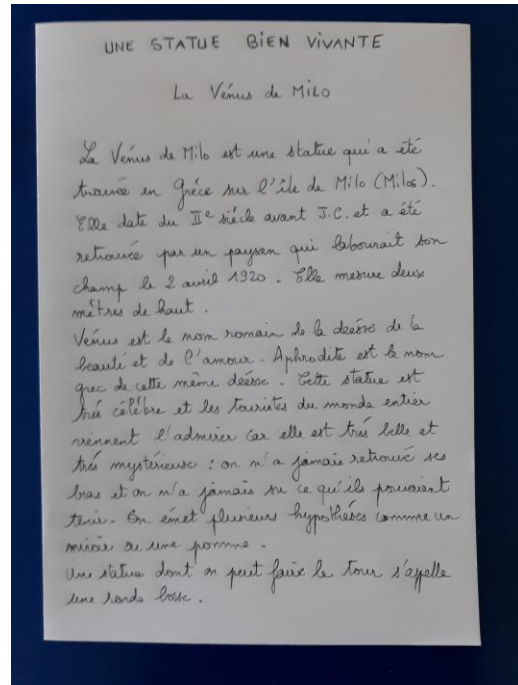 UNE STATUE BIEN VIVANTE
La Vénus de MiLO
La Vénus de Milo est une statue qui a été
trouvée en Grèce sur l'île de Milo (Milos).
Elle date du IIe siècle avant J.C. et a été
retrouvée par un paysan qui labourait son
champ le 2 avril 1920. Elle mesure deux
mètres de haut.
Vénus est le nom romain de la déesse de la
beauté et de l'amour. Aphrodite est le nom
grec de cette même déesse. Cette statue est
très célèbre et les touristes du monde entier
viennent l'admirer car elle est très belle et
très mystérieuse : on n'a jamais retrouvé ses
bras et on n'a jamais su ce qu'ils pouvaient
tenir. On émet plusieurs hypothèses comme un
miroir ou une pomme.
Une statue dont on peut faire le tour s'appelle
une ronde bosse.